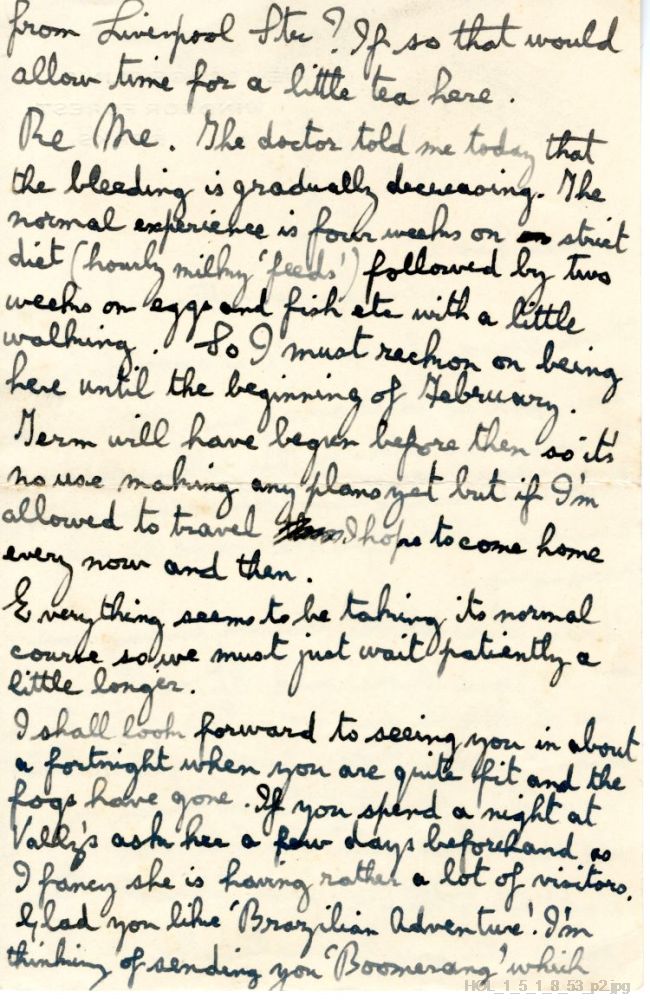 from Liverpool Str? If so that would
allow time for a little tea here.
Re Me. The doctor told me today that
the bleeding is gradually decreasing. The
normal experience is four weeks on strict
diet (hourly milky 'feeds') followed by two
weeks on eggs and fish etc with a little
walking. So I must reckon on being
here until the beginning of February.
Term will have begun before then so it's
no use making any plans yet but if I'm
allowed to travel I hope to come home
every now and then.
Everything seems to be taking its normal
course so we must just wait patiently a
little longer.
I shall look forward to seeing you in about
a fortnight when you are quite fit and the
fogs have gone. If you spend a night at
ask her a few days beforehand as
I fancy she is having rather a lot of visitors.
Glad you like 'Brazilian Adventure'. I'm
thinking of sending you 'Boomerang' which
HOL_1_5_1_8_53_p2.jpg